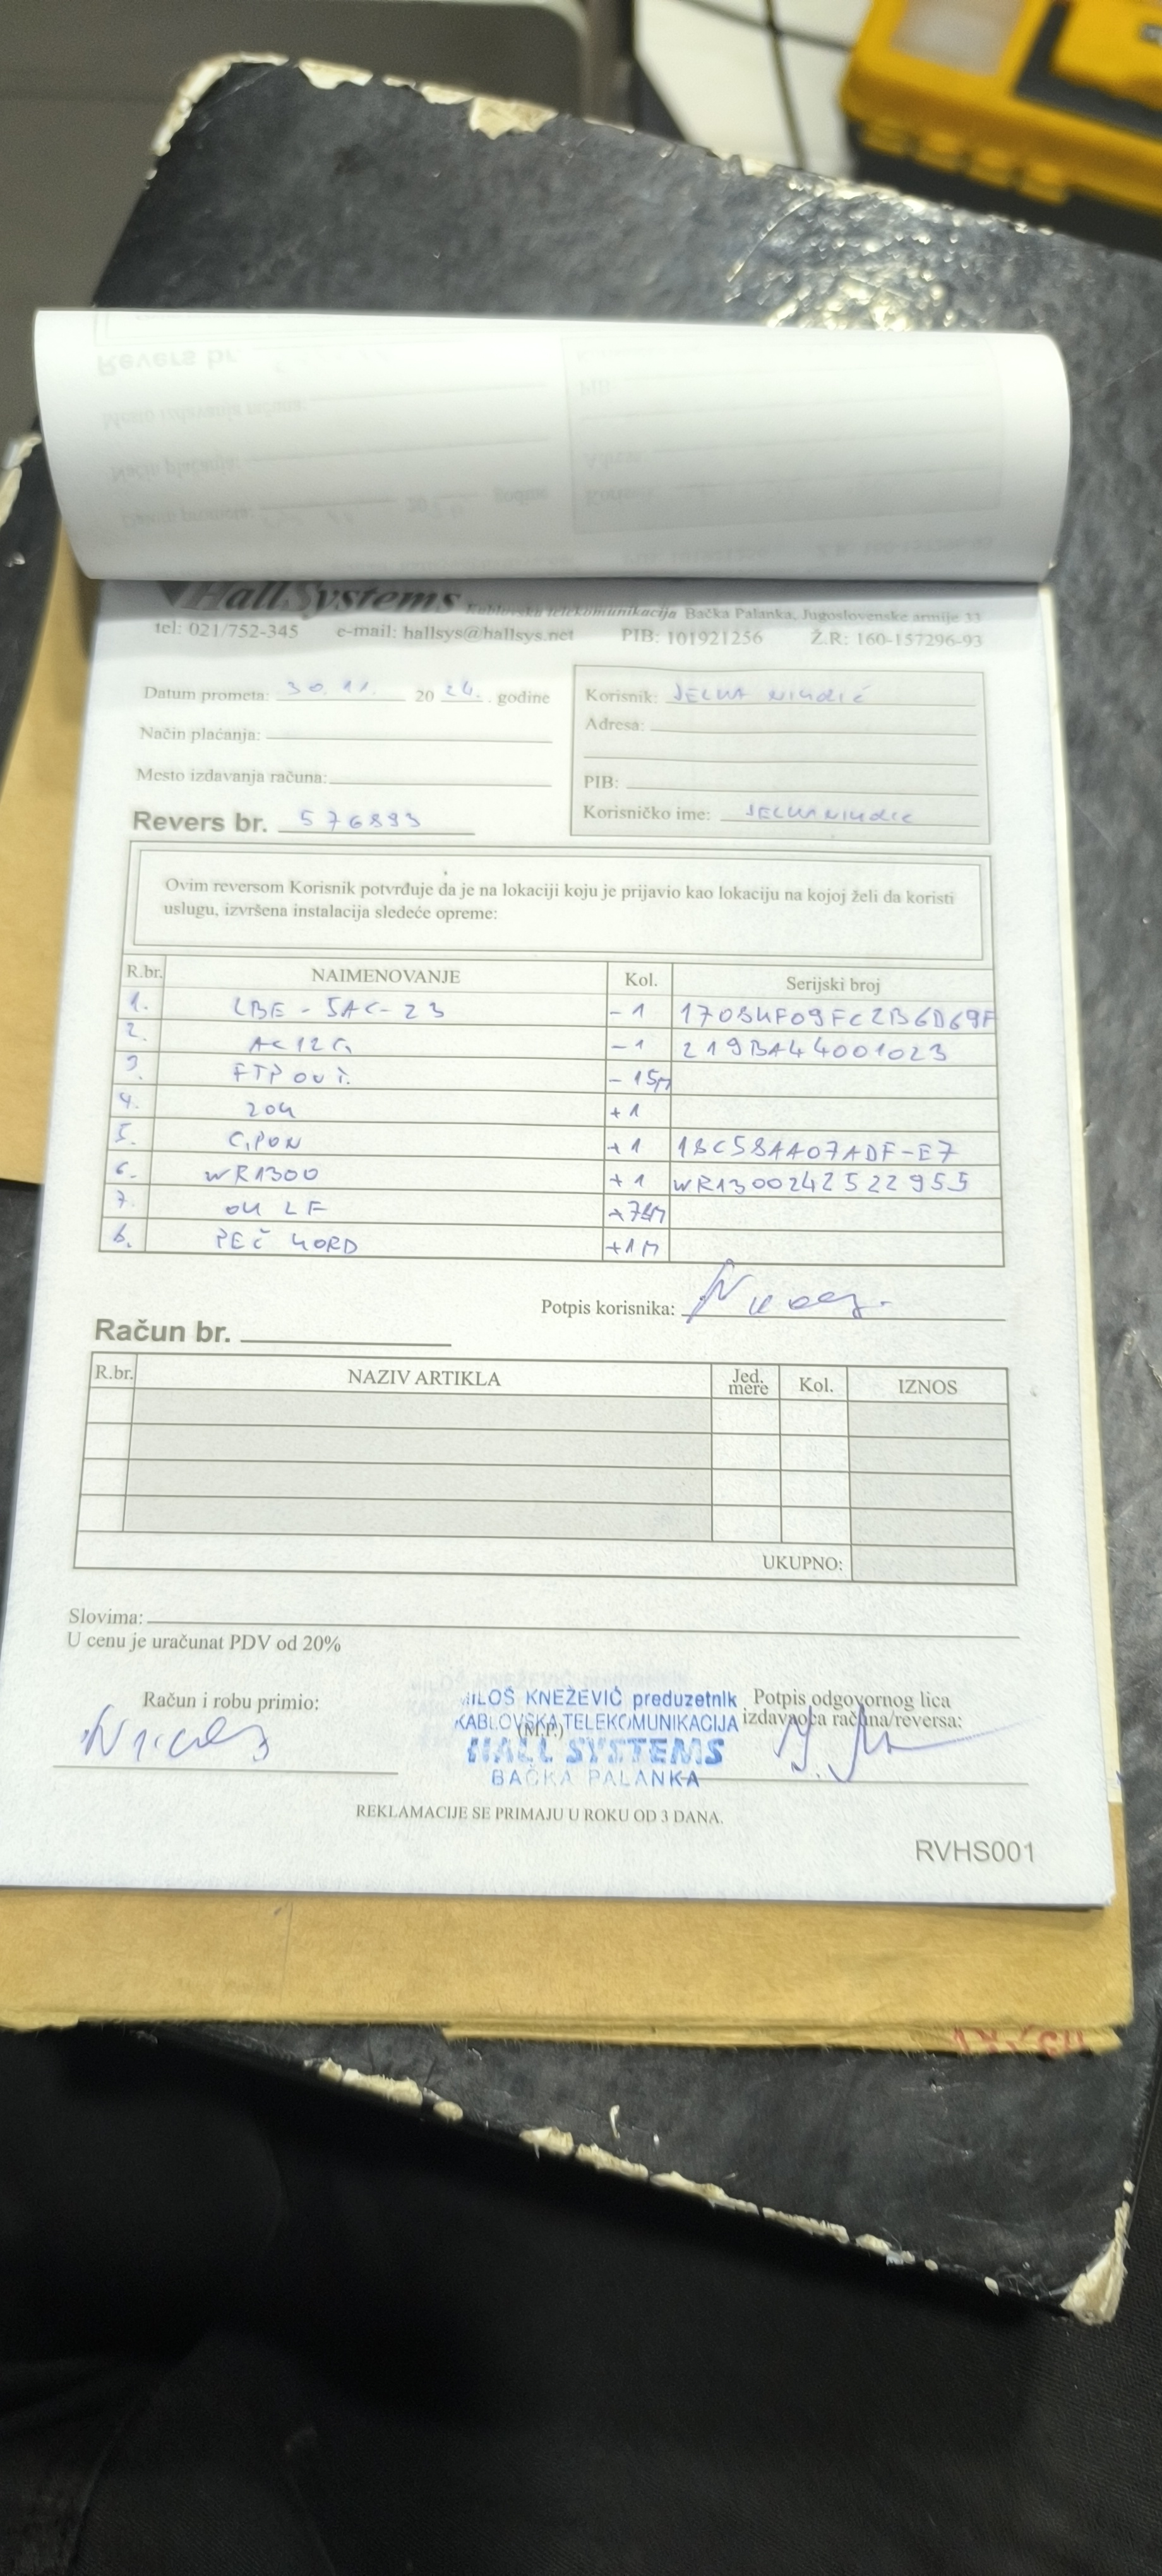 HallSystems Kablovska telekomunikacija Bačka Palanka, Jugoslovenske armije 33
tel: 021/752-345 e-mail: hallsys@hallsys.net PIB: 101921256 Ž.R: 160-157296-93
Datum prometa: 30.11. 2024. godine
Način plaćanja:
Mesto izdavanja računa:
Revers br. 576893
Korisnik:
Adresa:
PIB:
Korisničko ime:
Ovim reversom Korisnik potvrđuje da je na lokaciji koju je prijavio kao lokaciju na kojoj želi da koristi
uslugu, izvršena instalacija sledeće opreme:
R.br. NAIMENOVANJE Kol. Serijski broj
1. LBE-5AC-23 -1
2. AC12G -1 219BA44001023
3. FTP -15m
4. +1
5. GPON +1 18C58AA07ADF-E7
6. WR1300 +1 WR1300242522955
7. LF
8. +1m
Potpis korisnika:
Račun br.
R.br. NAZIV ARTIKLA Jed. mere Kol. IZNOS
UKUPNO:
Slovima:
U cenu je uračunat PDV od 20%
Račun i robu primio:
(M.P.)
MILOŠ KNEŽEVIĆ preduzetnik
KABLOVSKA TELEKOMUNIKACIJA
HALL SYSTEMS
BAČKA PALANKA
Potpis odgovornog lica
izdavaoca računa/reversa:
REKLAMACIJE SE PRIMAJU U ROKU OD 3 DANA.
RVHS001